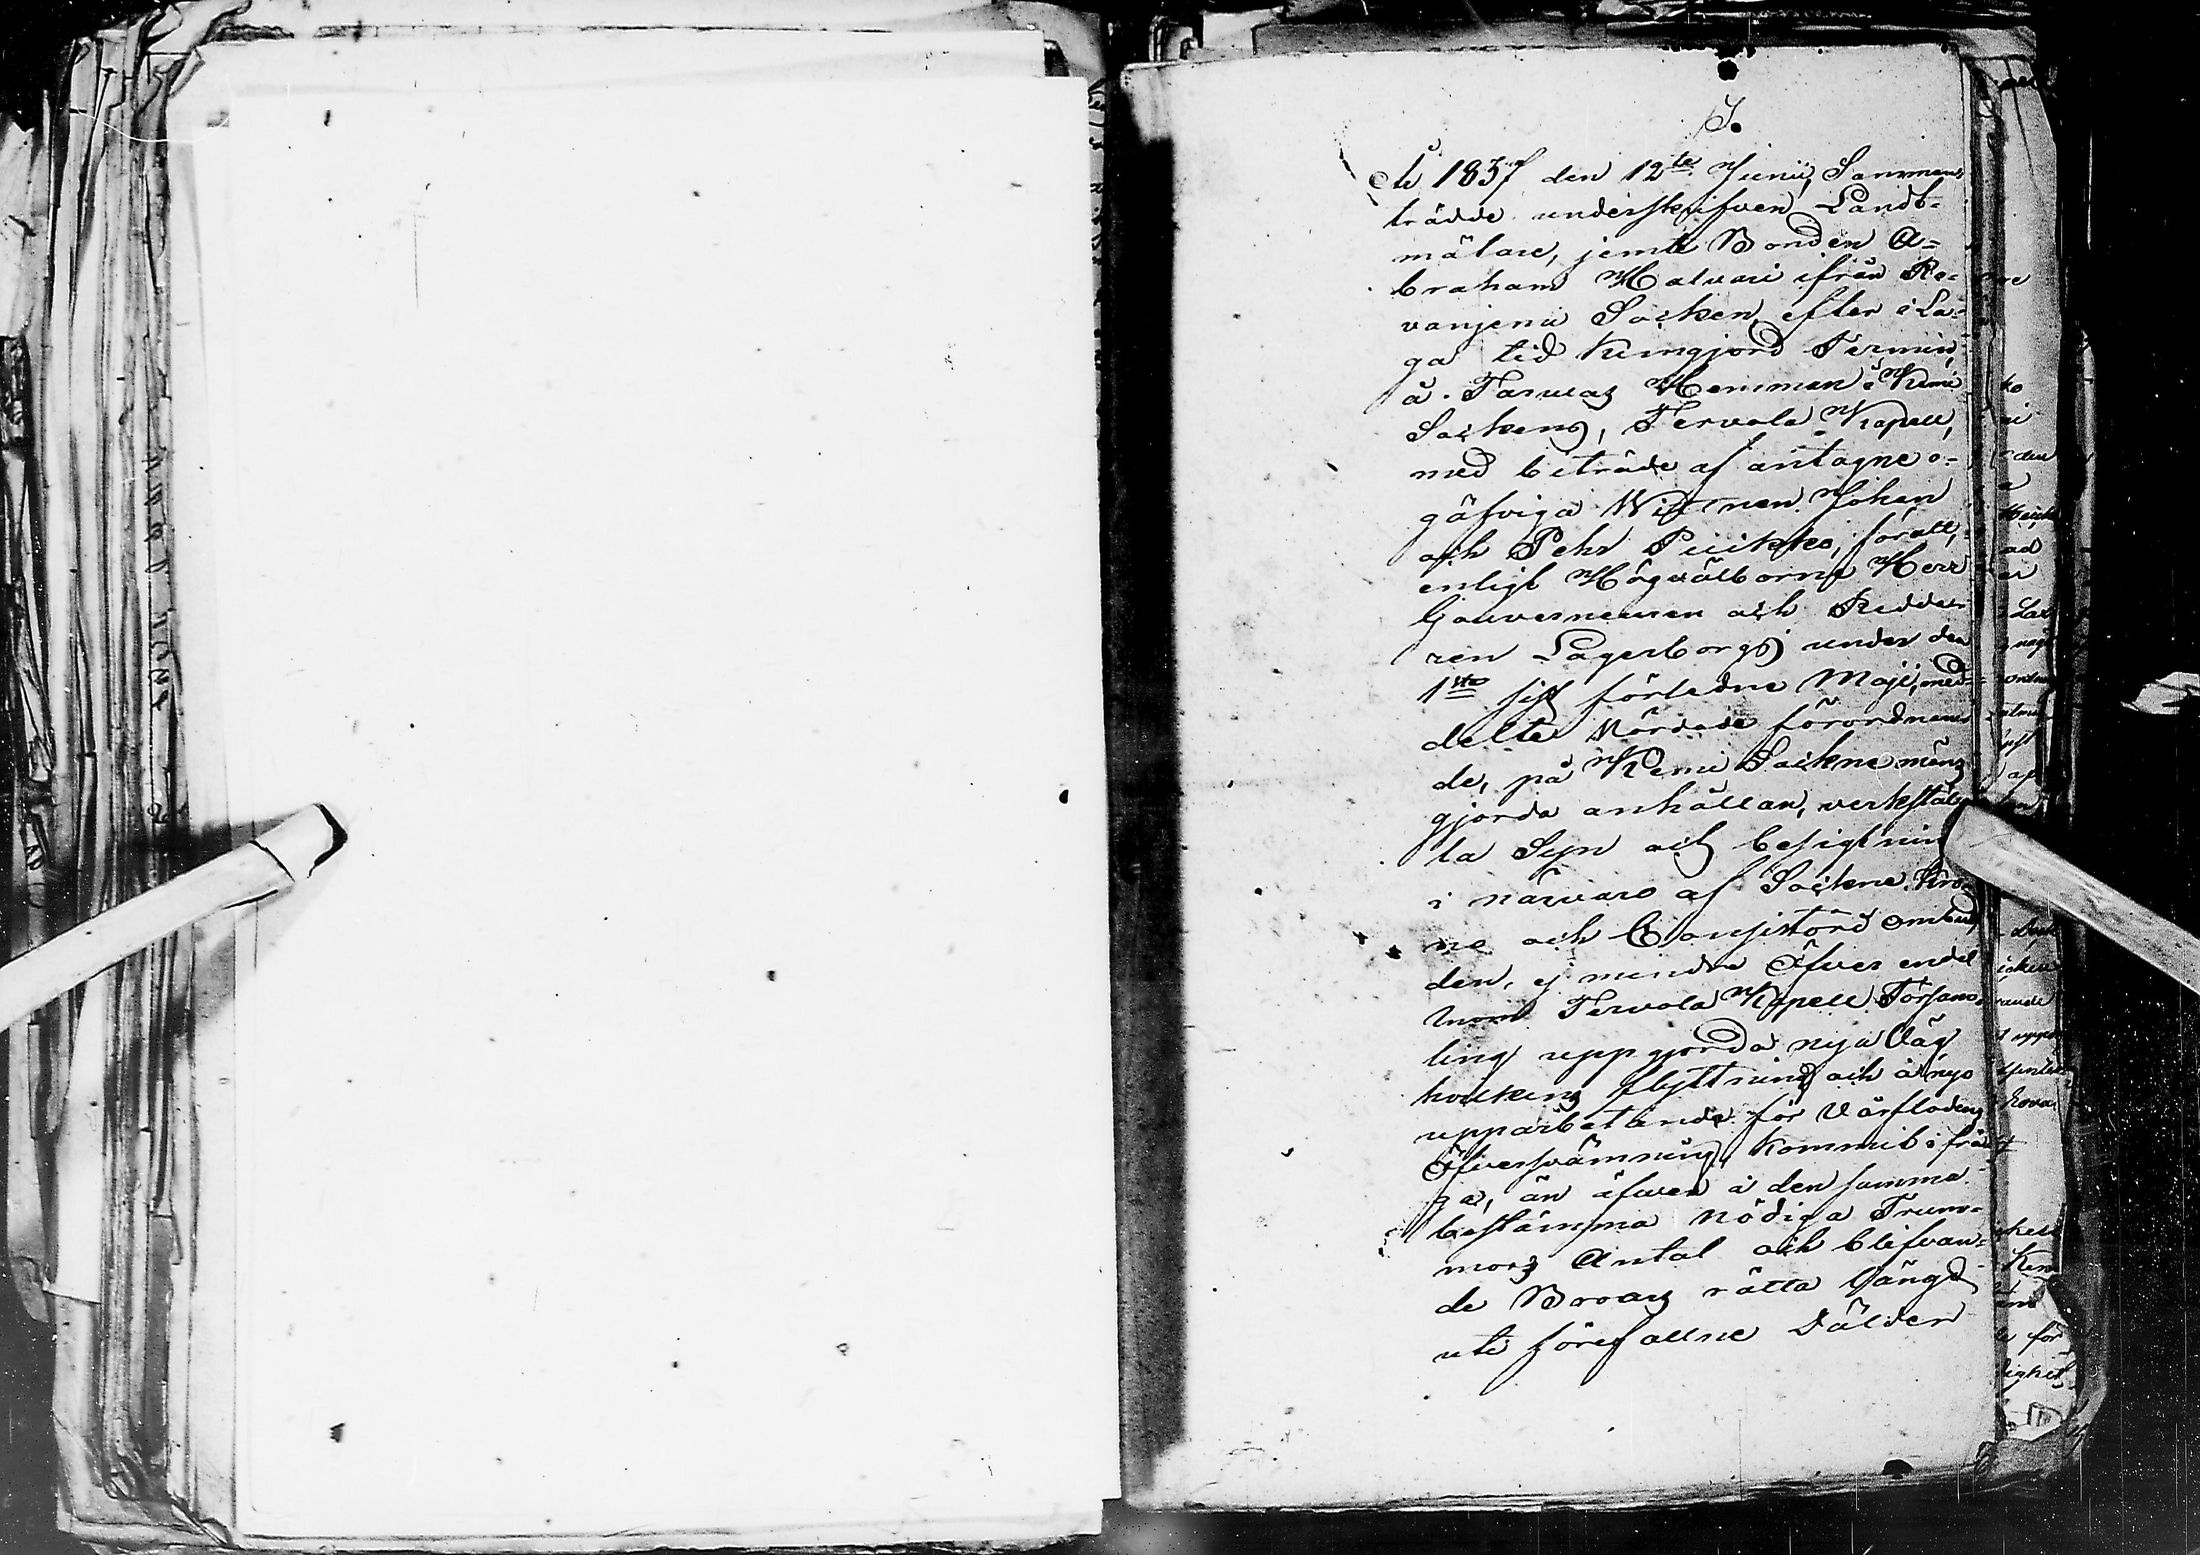 I.
År 1837 den 12te Junii, Samman-
trädde underskrifven Landt-
mätare, jemte Bonden A-
braham Halvari ifrån Ro-
vanjemi Socken, efter i La-
ga tid kungjord Termin,
å Tarvas Hemman i Kemi
Sockens, Tervola Kapell,
med biträde af antagne o-
gäfviga Wittnen Johan
och Pehr Puikko, för att,
enligt Högvälborne Herr
Gouverneuren och Ridda-
ren Lagerborgs under den
1sta sist förledne Maji, med-
delte Vördade förordnan-
de, på Kemi Sockne mäns
gjorda anhållan, verkstäl-
la Syn och besigtning
i närvaro af Sockne Kro-
no och Consistorii ombud
den, ej mindre Öfver
inom Tervola Kapell Försam-
ling uppgjorda nya Väg
flyttning och å nyo
upparbetande för Vårflodens
Öfversvämning, kommit i frå-
ga, än äfven å den samma
bestämma nödiga Trum-
mors Antal och blifvan-
de Broars rätta längd
uti förefallne Dälder